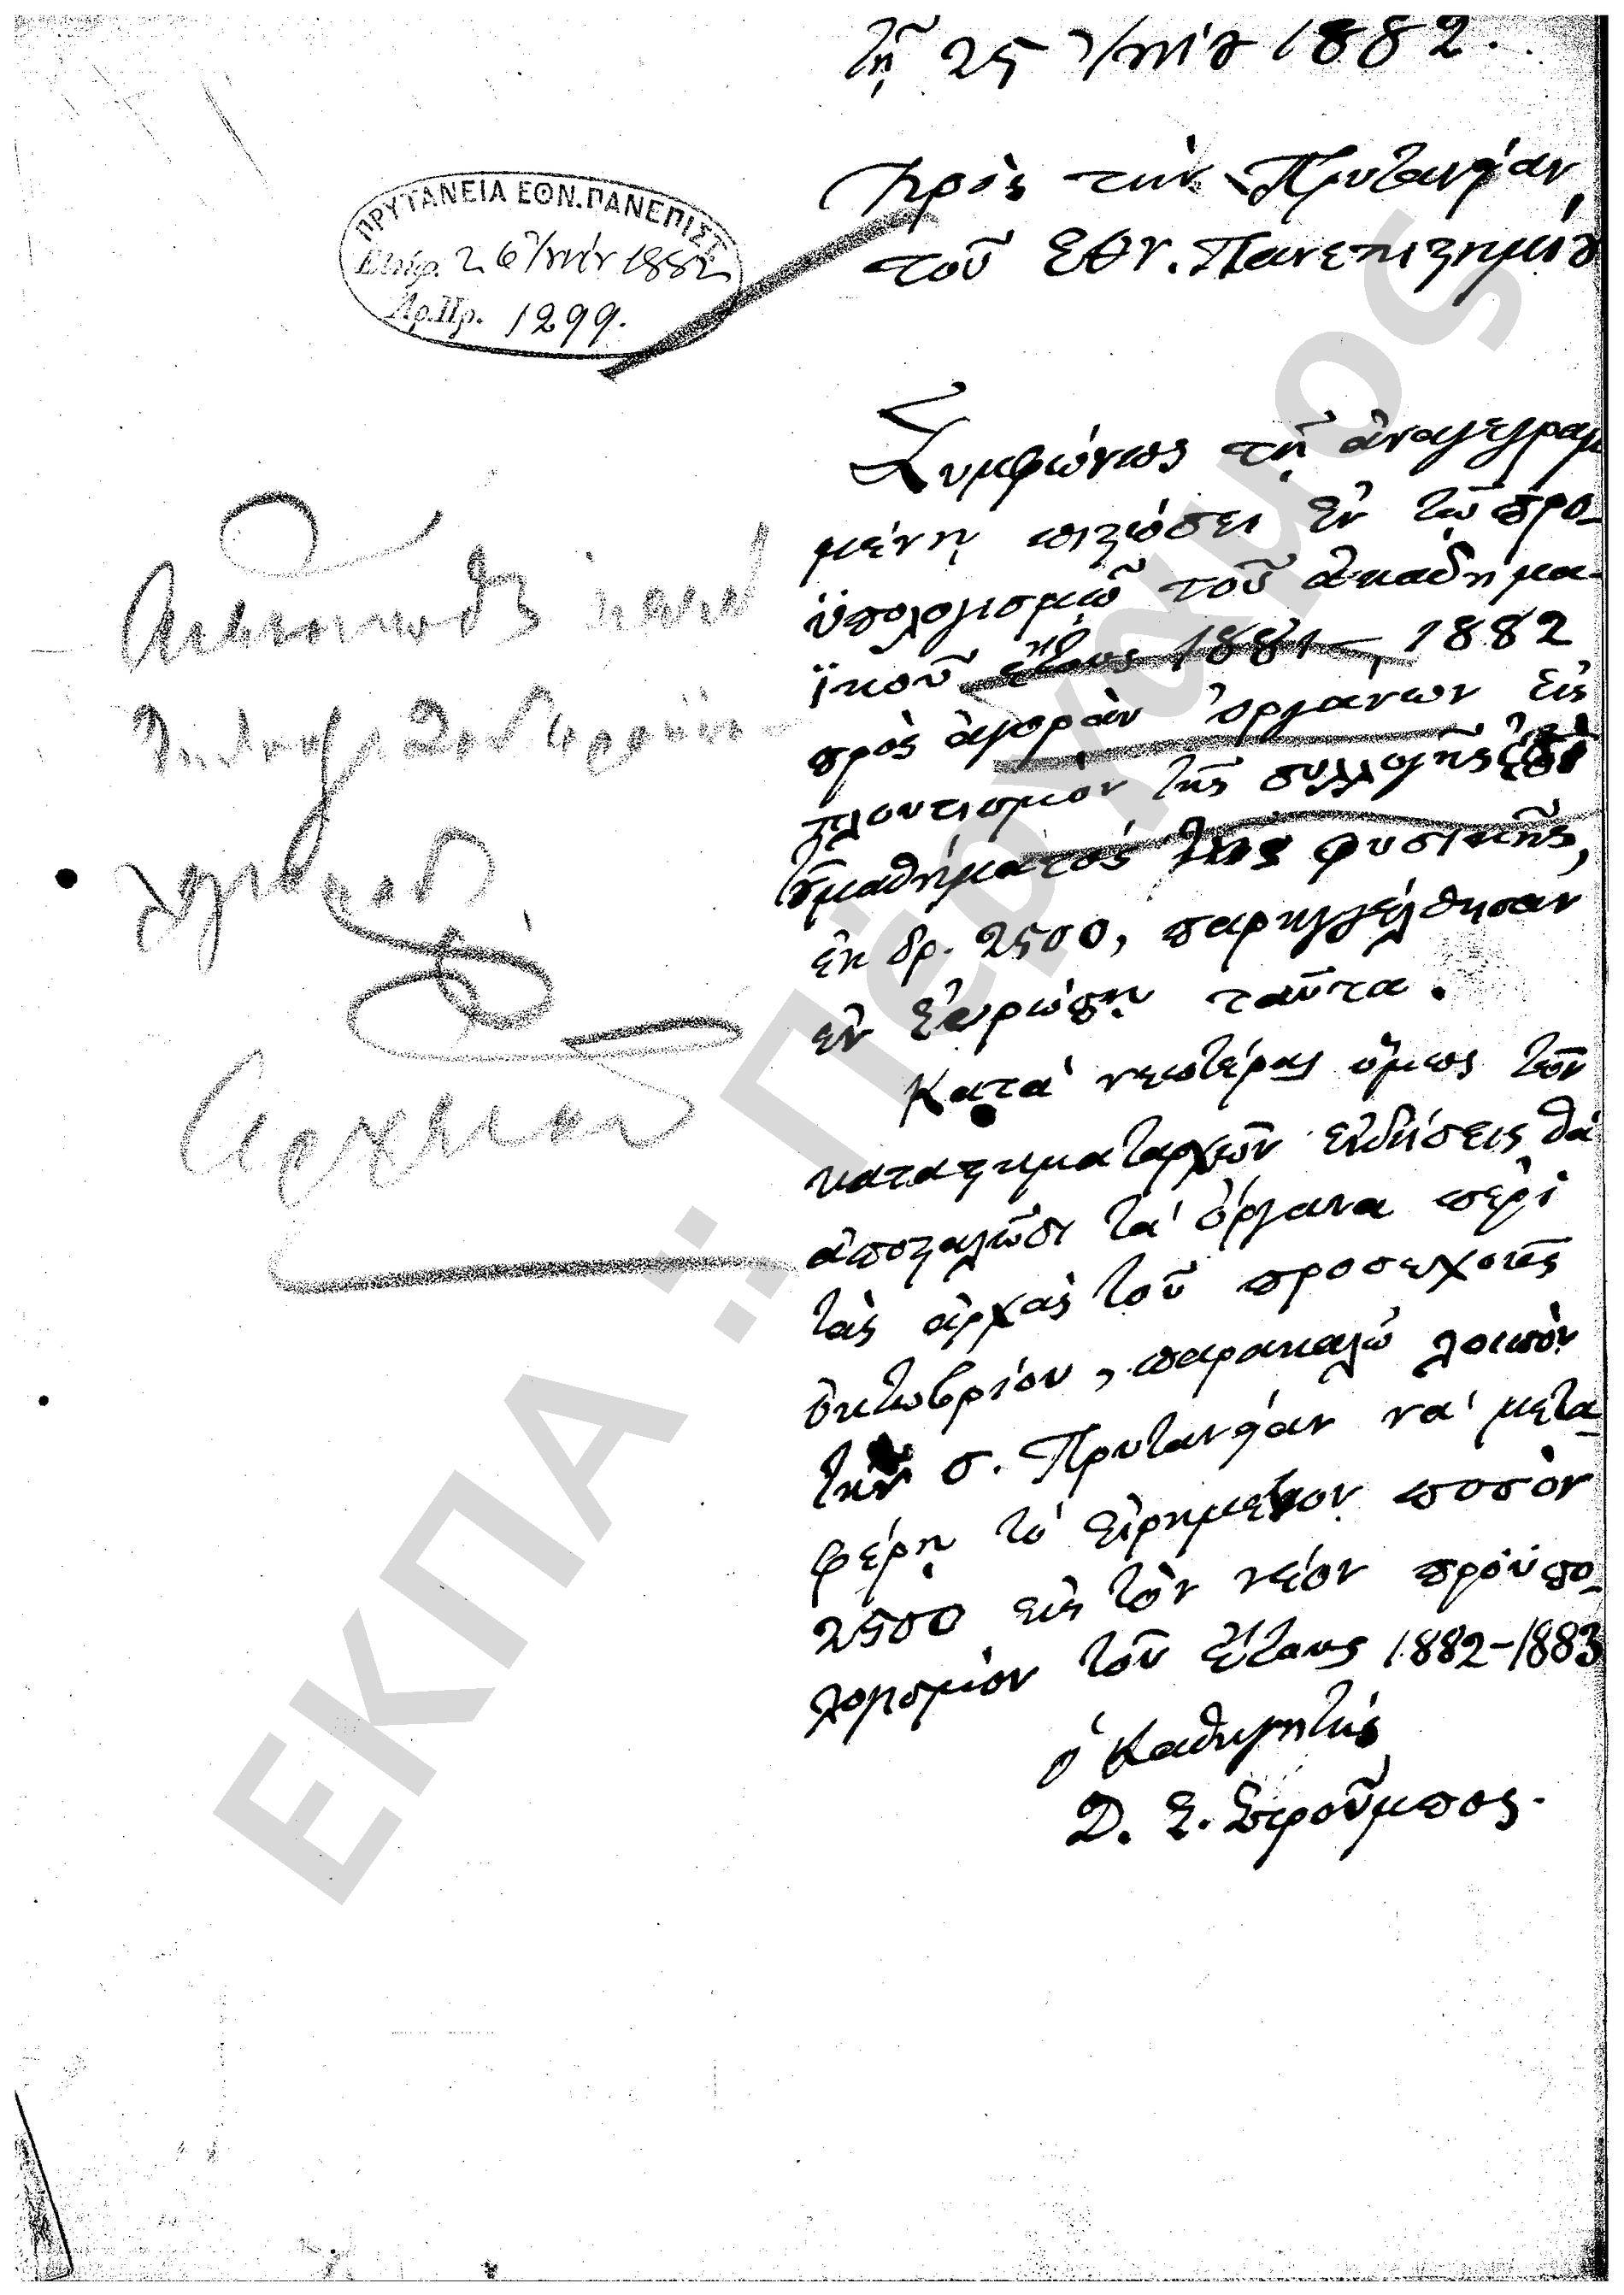 τῇ 25 Ἰουνίου 1882.
Πρὸς τὴν Πρυτανείαν
τοῦ Ἐθν. Πανεπιστημίου
ΠΡΥΤΑΝΕΙΑ ΕΘΝ. ΠΑΝΕΠΙΣΤ.
Ἐλήφ. 26 Ἰουνίου 1882
Ἀρ. Πρ. 1299.
Συμφώνως τῇ ἀναγεγραμ
μένῃ πιστώσει ἐν τῷ προ-
ϋπολογισμῷ τοῦ ἀκαδημα-
ϊκοῦ ἔτους 1881–1882
πρὸς ἀγορὰν ὀργάνων εἰς
πλουτισμὸν τῆς συλλογῆς
τοῦ μαθήματος τῆς φυσικῆς,
ἐκ δρ. 2500, παρηγγέλθησαν
ἐν Εὐρώπῃ ταῦτα.
Κατὰ νεωτέρας ὅμως τῶν
καταστηματαρχῶν εἰδήσεις θὰ
ἀποσταλῶσι τὰ ὄργανα περὶ
τὰς ἀρχὰς τοῦ προσεχοῦς
Ὀκτωβρίου, παρακαλῶ λοιπὸν
τὴν σ. Πρυτανείαν νὰ μετα-
φέρῃ τὸ εἰρημένον ποσὸν
2500 εἰς τὸν νέον προϋπο-
λογισμὸν τοῦ ἔτους 1882-1883
ὁ Καθηγητὴς
Δ. Σ. Στροῦμπος.
Ἀρχεῖον
ΕΚΠΑ :: Πέργαμος